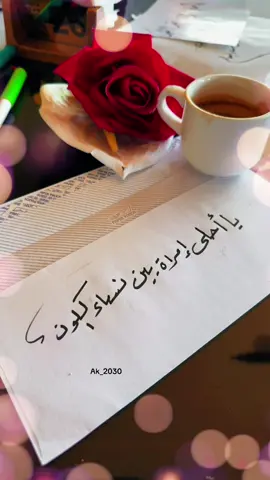 يا أحلى إمرأة بين نساء الكون
Ak_2030